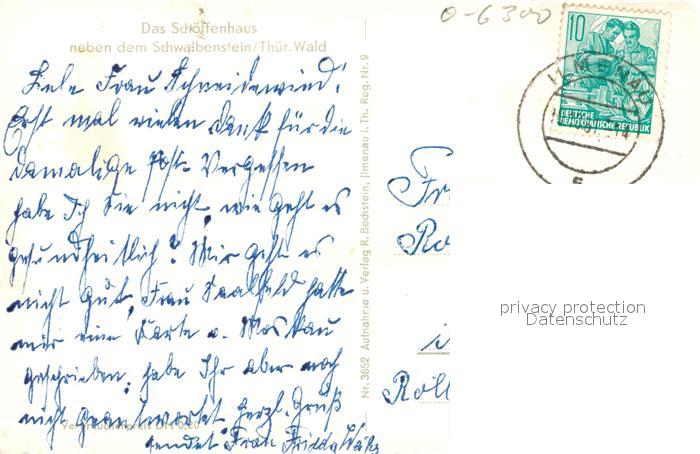 Das Schöffenhaus
neben dem Schwalbenstein/Thür. Wald
Liebe Frau Schneidewind!
Erst mal vielen Dank für die
damalige Post. Vergessen
habe Ich Sie nicht, wie geht es
gesundheitlich? Mir geht es
nicht gut, Frau Saalfeld hatte
mir eine Karte v. Moskau
geschrieben, habe Ihr aber noch
nicht geantwortet. Herzl. Gruß
sendet Frau Frieda
Verbraucherpreis DM 0,20
Nr. 3652 Aufnahme u. Verlag R. Bechstein, Jlmenau i. Th. Reg. Nr. 9
0-6300
10
DEUTSCHE
DEMOKRATISCHE REPUBLIK
ILMENAU
privacy protection
Datenschutz